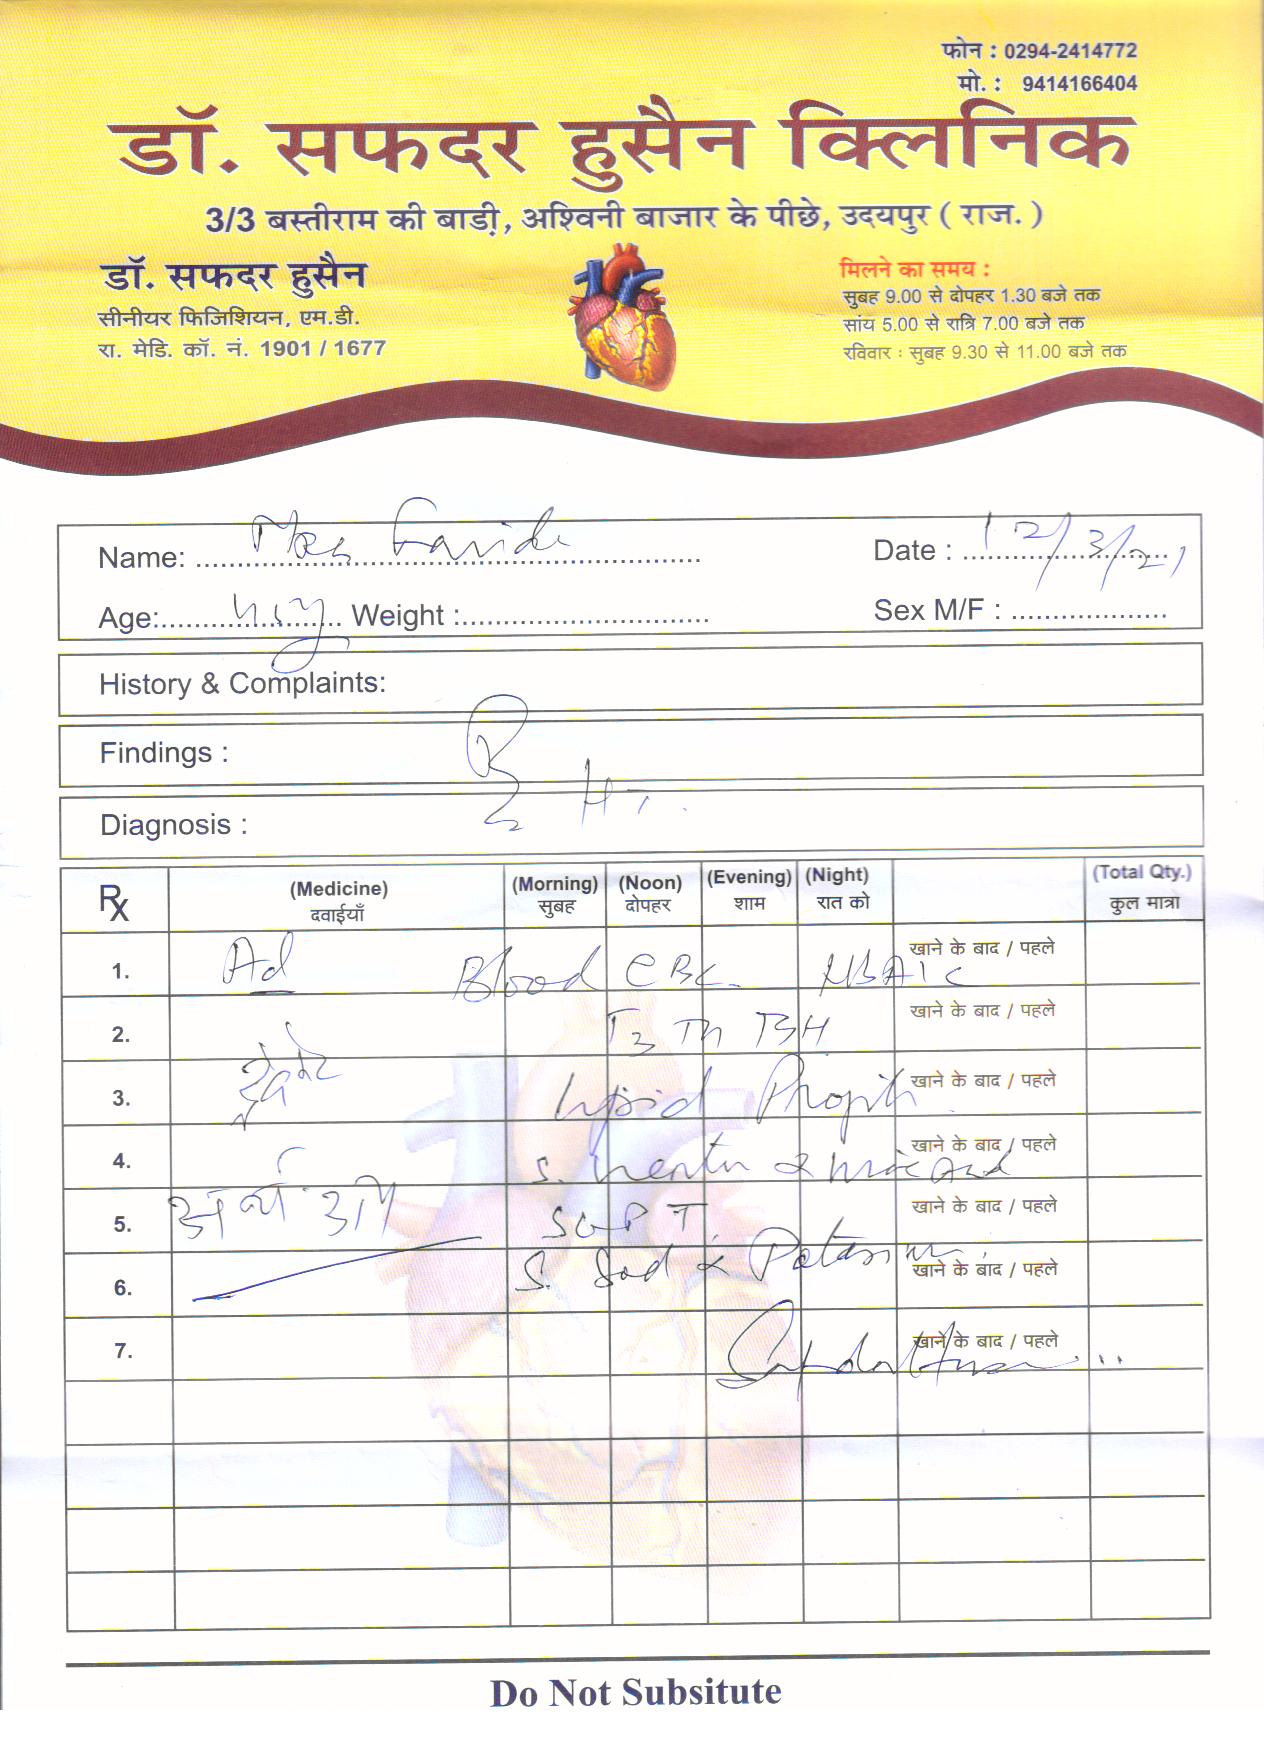 फोन : 0294-2414772
मो. : 9414166404
डॉ. सफदर हुसैन क्लिनिक
3/3 बस्तीराम की बाडी़, अश्विनी बाजार के पीछे, उदयपुर ( राज. )
डॉ. सफदर हुसैन
सीनीयर फिजिशियन, एम.डी.
रा. मेडि. कॉ. नं. 1901 / 1677
मिलने का समय :
सुबह 9.00 से दोपहर 1.30 बजे तक
सांय 5.00 से रात्रि 7.00 बजे तक
रविवार : सुबह 9.30 से 11.00 बजे तक
Name: Mrs Farida Date : 12/3/21
Age: Weight : Sex M/F :
History & Complaints:
Findings :
Diagnosis : HT.
Rx (Medicine) (Morning) (Noon) (Evening) (Night) (Total Qty.)
दवाईयाँ सुबह दोपहर शाम रात को कुल मात्रा
1. Ad Blood CBC. HBA1C खाने के बाद / पहले
2. T3 T4 TSH खाने के बाद / पहले
3. Lipid खाने के बाद / पहले
4. S. खाने के बाद / पहले
5. SGPT. खाने के बाद / पहले
6. S. Sod & Potassium. खाने के बाद / पहले
7. खाने के बाद / पहले
Do Not Subsitute